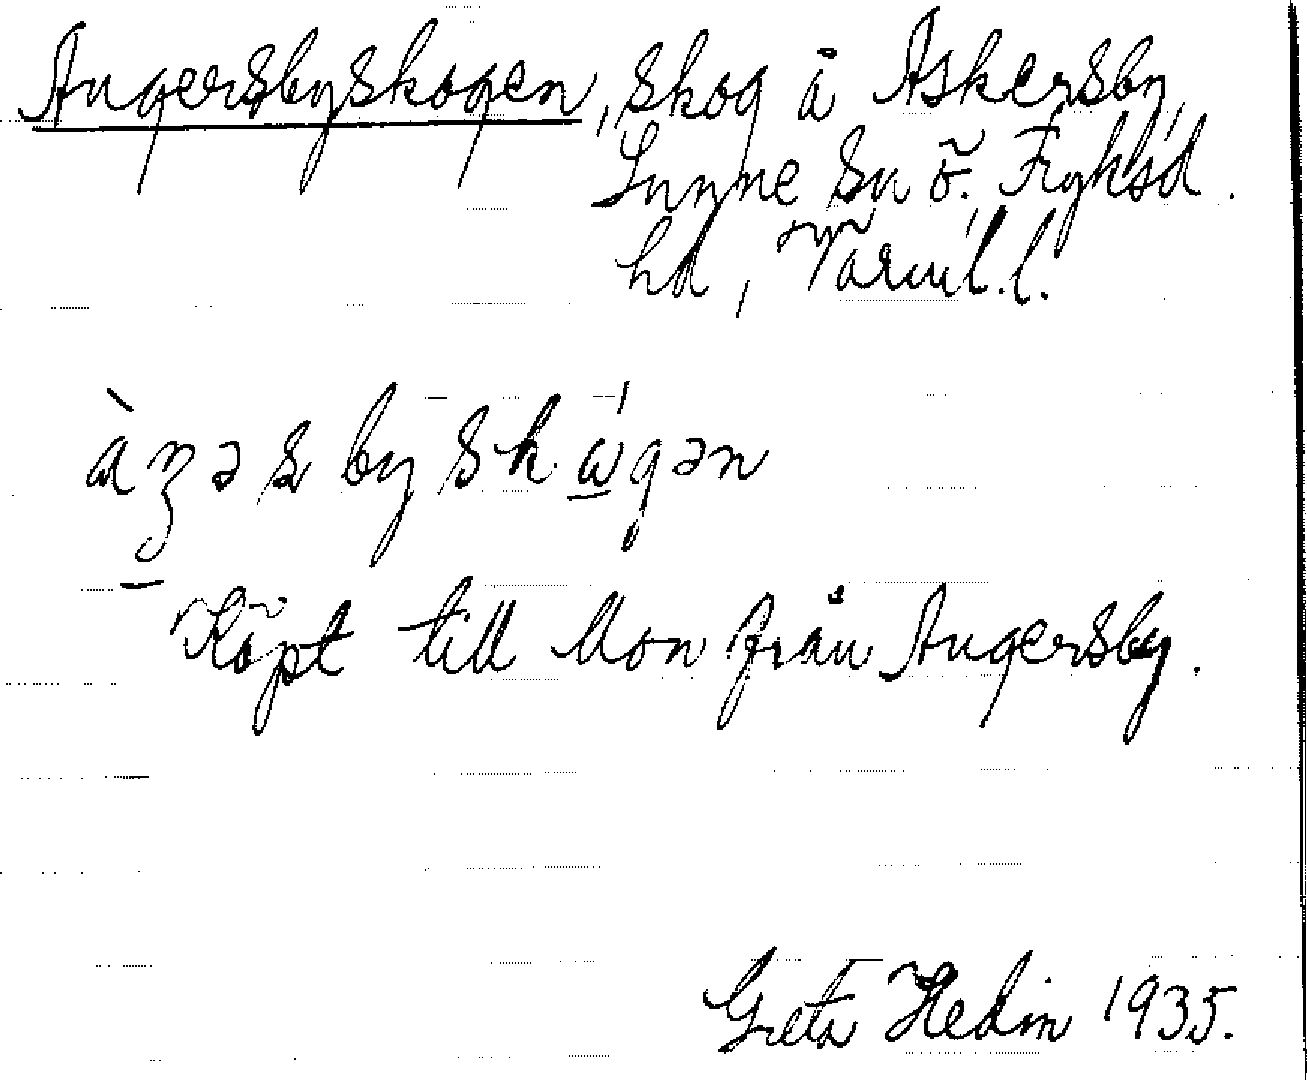 Angersbyskogen, skog å Askersby,
Sunne sn Ö. Fryksd.
hd, Värml. l.
Köpt till Mon från Angersby.
Greta Hedin 1935.